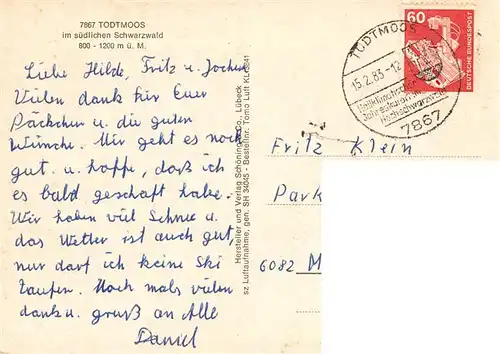 7867 TODTMOOS
im südlichen Schwarzwald
800 - 1200 m ü. M.
Liebe Hilde, Fritz u. Jochen
Vielen dank für Euer
Päckchen u. die guten
Wünsche. Mir geht es noch
gut. u. hoffe, daß ich
es bald geschaft habe.
Wir haben viel Schnee u.
das Wetter ist auch gut
nur darf ich keine Ski
laufen. Noch mals vielen
dank u. gruß an Alle
Daniel
Hersteller und Verlag Schöning & Co., Lübeck
sz Luftaufnahme, gen. SH 34045 - Bestellnr. Tomo Luft KL
TODTMOOS
15.2.83-12
Heilklimatischer
Jahreskurort
Hochschwarzwald
7867
60
DEUTSCHE BUNDESPOST
Fritz Klein
Park
6082 M